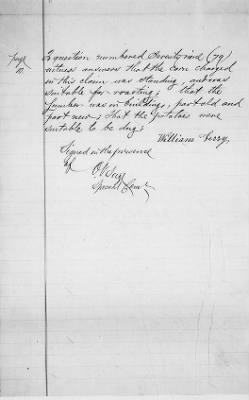 Page
10.
To question numbered Seventy nine (79)
witness answers that the corn charged
in this claim was standing, and was
suitable for roasting; that the
lumber was in buildings, part old and
part new; that the potatoes were
suitable to be dug.
William Terry,
Signed in the presence
of
Special Com'r